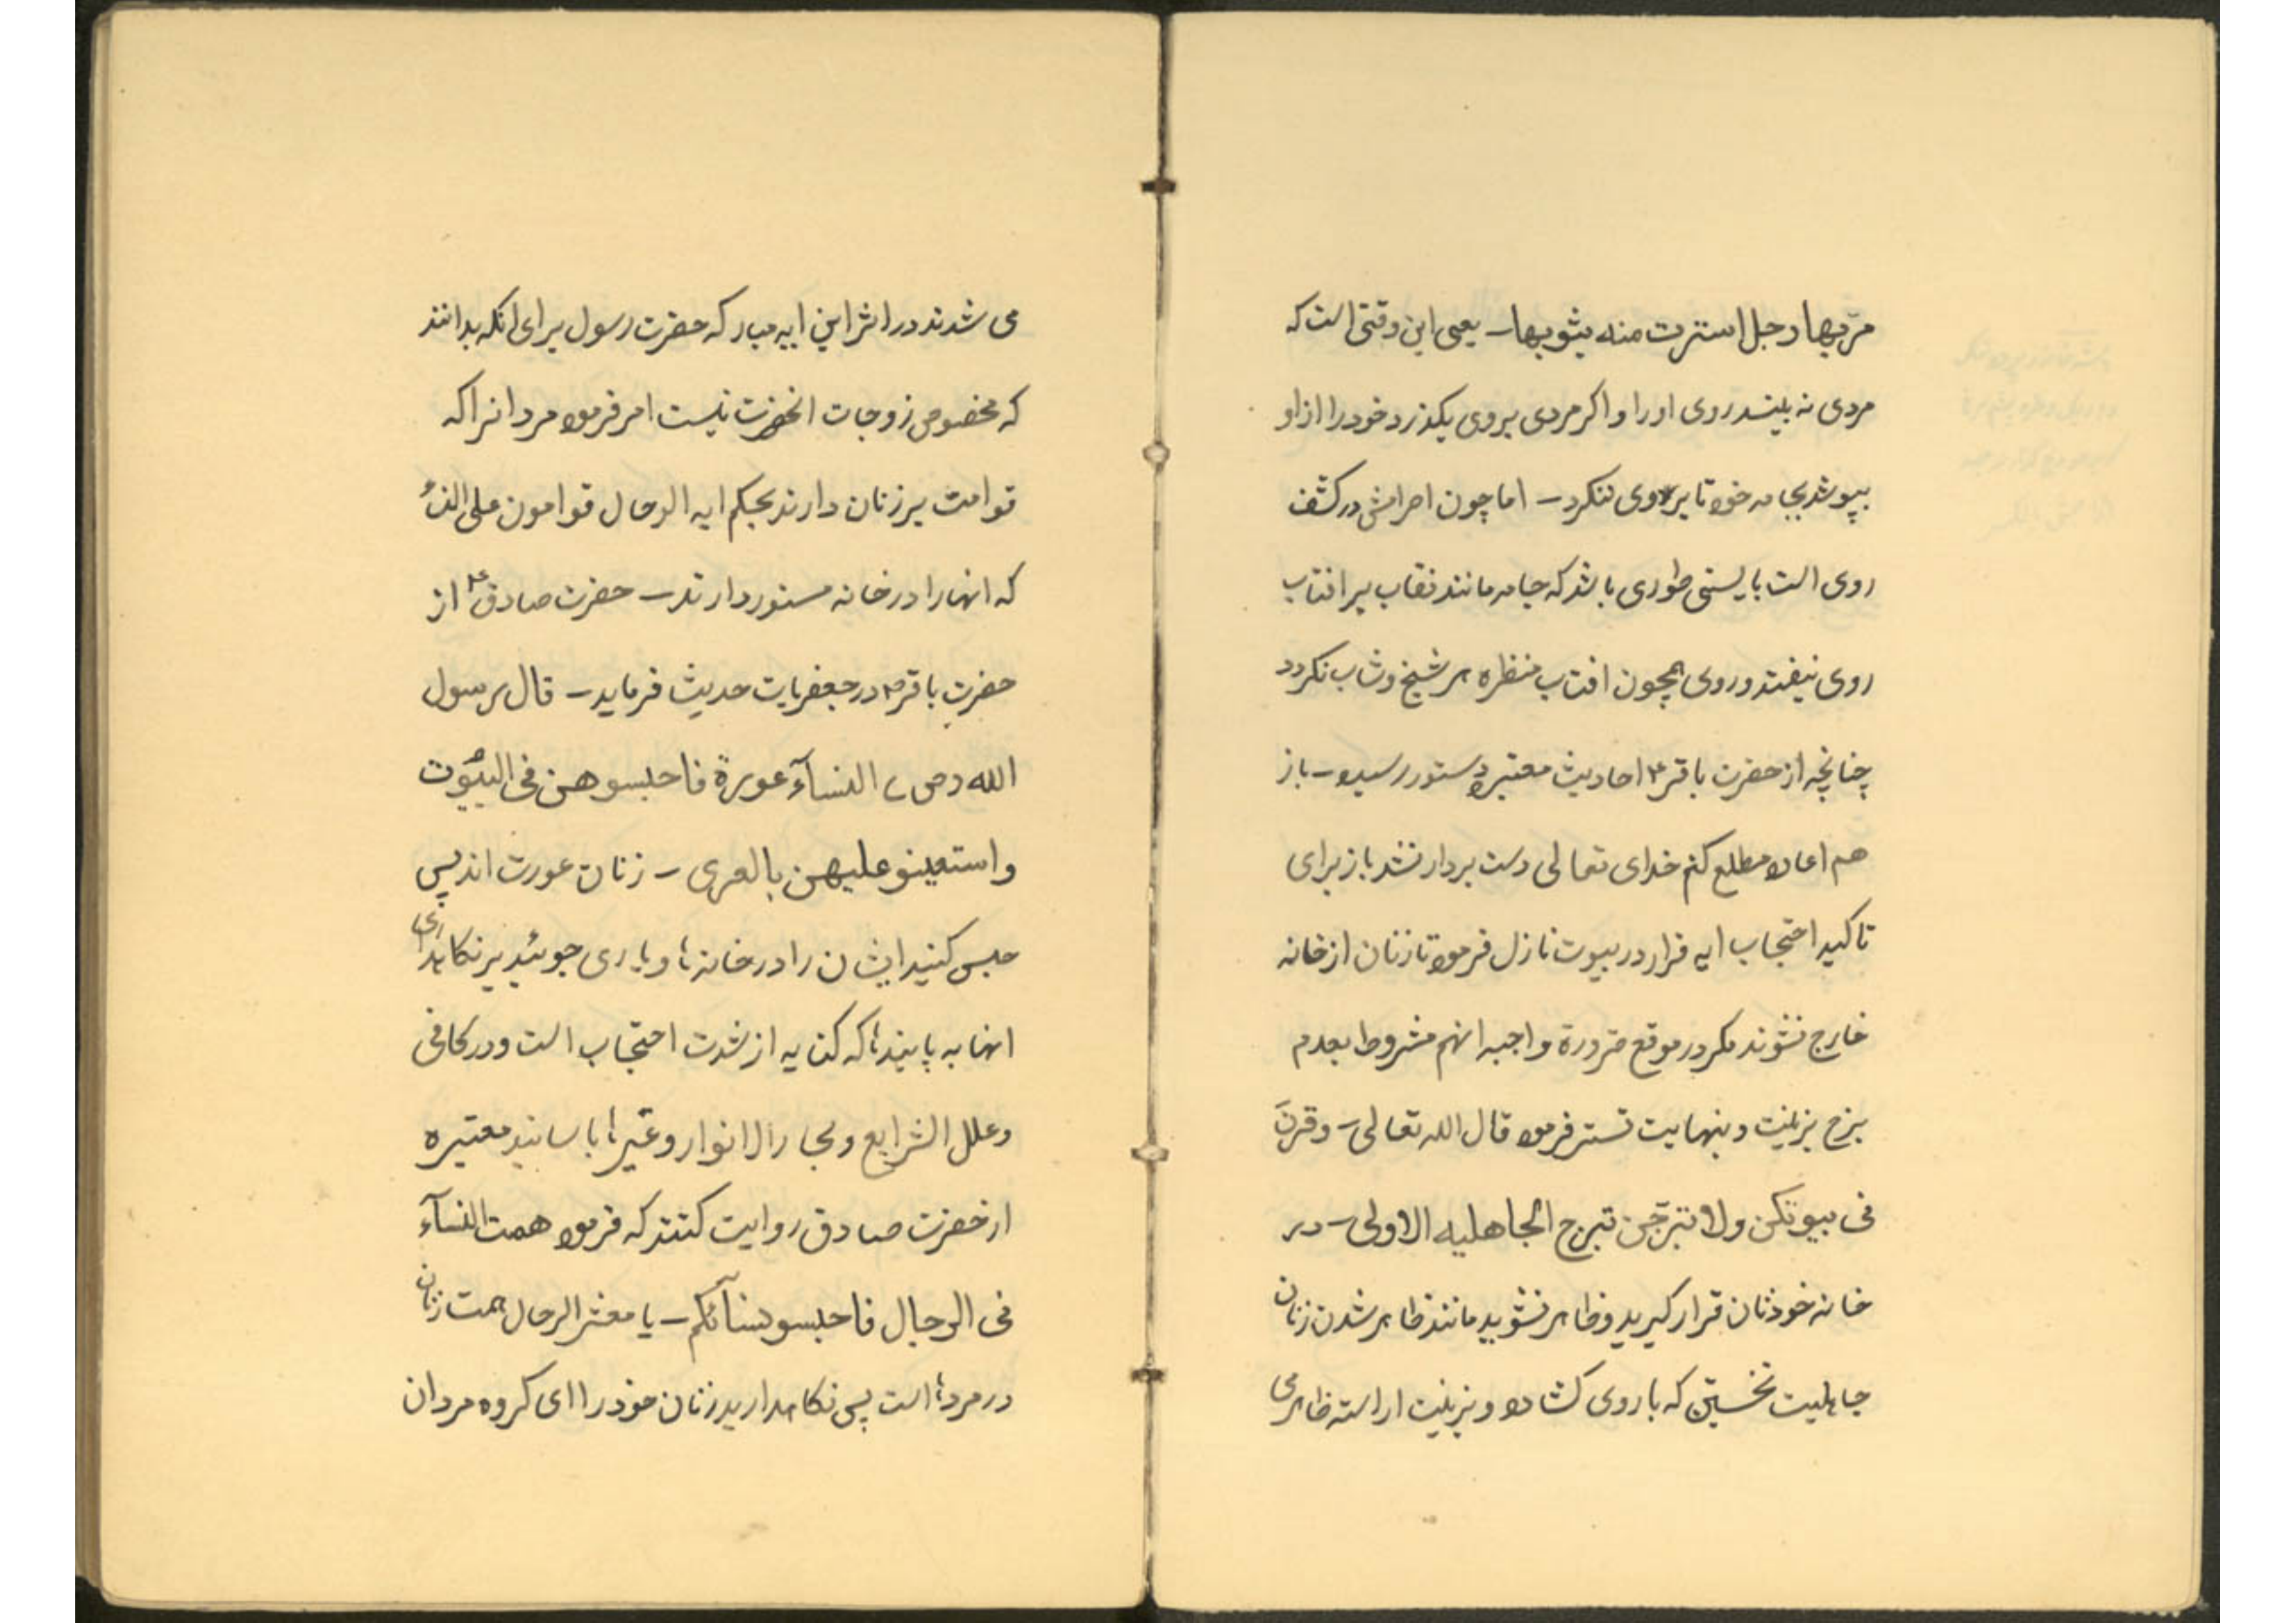 مرّ بها رجل استترت منه بثوبها – یعنی این وقتی است که
مردی نه بیند روی او را و اکر مردی بروی بکذرد خود را از او
بپوشد بجامه خود تا بر وی ننکرد – اما چون احرامش در کشف
روی است بایستی طوری باشد که جامه مانند نقاب بر افتاب
روی نیفتد و روی همچون افتاب منظره هر شیخ و شاب نکردد
چنانچه از حضرت باقر ع احادیث معتبره دستور رسیده – باز
هم اعاده مطلع کنم خدای تعالی دست بردار نشد باز برای
تاکید احتجاب ایه قرار در بیوت نازل فرموده تا زنان از خانه
خارج نشوند مکر در موقع ضرورة واجبه انهم مشروط بعدم
برج بزینت و بنهایت تستر فرموده قال الله تعالی – وقرنَ
فی بیوتکن ولا تبرّجن تبرج الجاهلیه الاولی – در
خانه خودتان قرار کیرید و ظاهر نشوید مانند ظاهر شدن زنان
جاهلیت نخستین که با روی کشاده و بزینت اراسته ظاهر می
می شدند در اثر این ایه مبارکه حضرت رسول برای انکه بدانند
که مخصوص زوجات انحضرت نیست امر فرموده مردانرا که
قوامت بر زنان دارند بحکم ایه الرجال قوامون علی النساء
که انها را در خانه مستور دارند – حضرت صادق ع از
حضرت باقر ع در جعفریات حدیث فرماید – قال رسول
الله (ص) النسآء عورة فاحبسوهن فی البیُوت
واستعینو علیهن بالعری – زنان عورت اند پس
حبس کنید ایشان را در خانه ها و یاری جوئید بر نکاهداری
انها به پابندها که کنایه از شدت احتجاب است و در کافی
و علل الشرایع و بحار الانوار و غیرها باسانید معتبره
از حضرت صادق روایت کنند که فرموده همت النسآء
فی الرجال فاحبسو نسآئکم – یا معشر الرجال همت زنان
در مردها است پس نکاهدارید زنان خود را ای کروه مردان